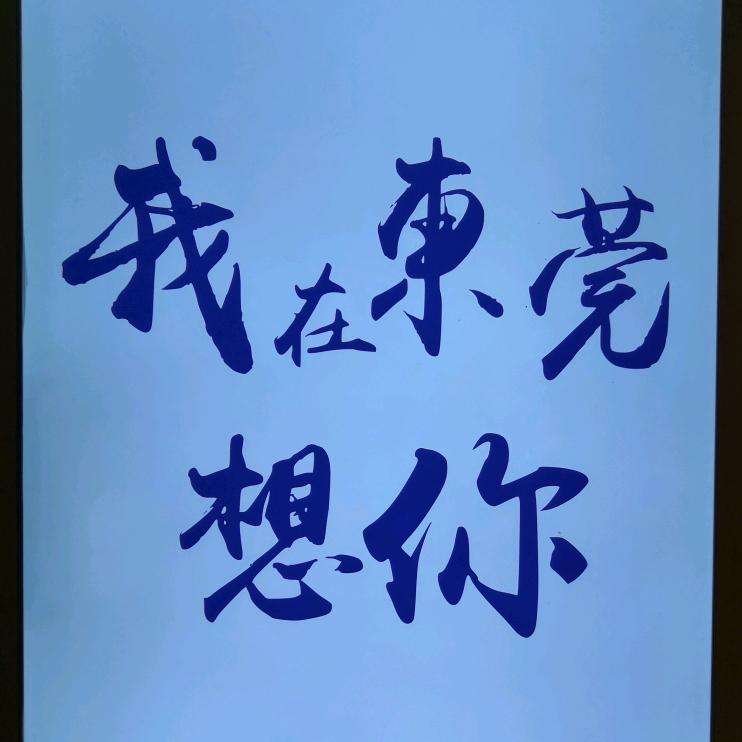 我在東莞
想你